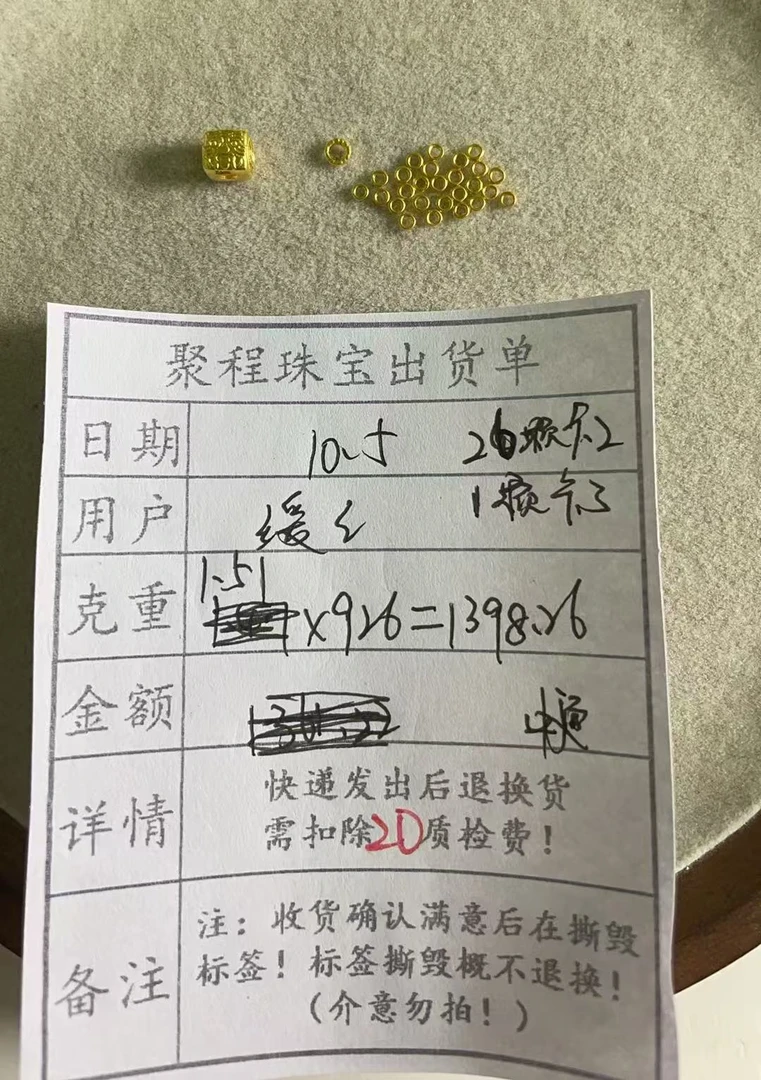 聚程珠宝出货单
日期 10.5 26颗卡2
用户 缓缓 1颗卡3
克重 1.51
×926=1398.26
金额 中通
详情 快递发出后退换货
需扣除20质检费！
备注 注：收货确认满意后在撕毁
标签！标签撕毁概不退换！
（介意勿拍！）